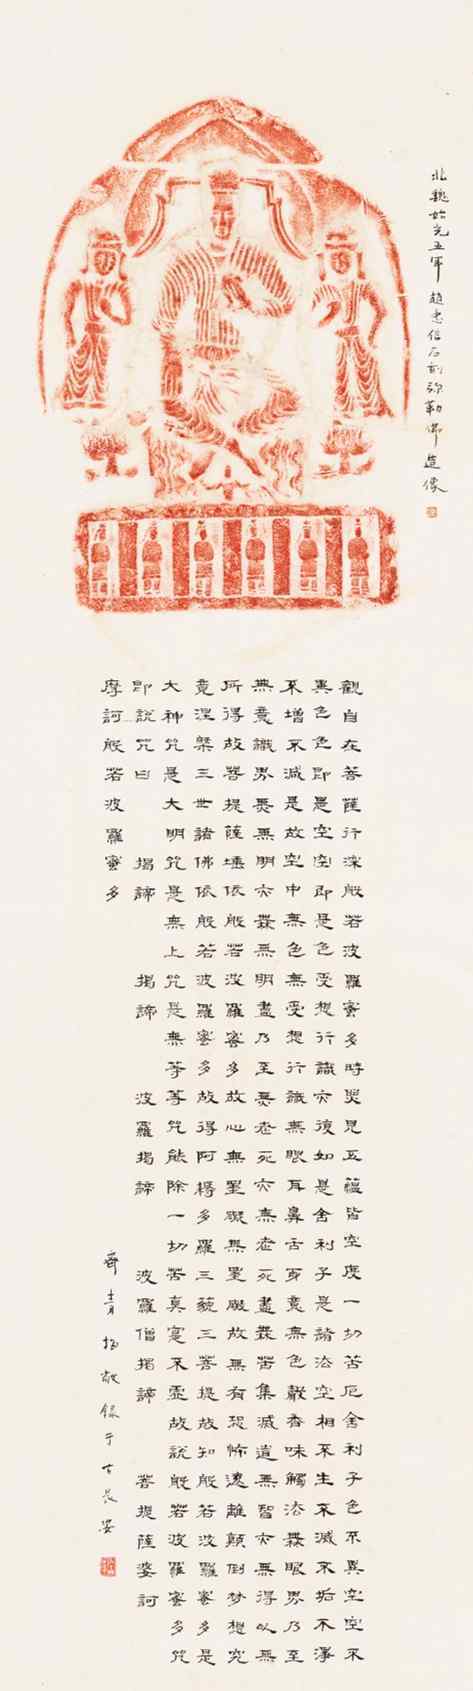 北魏始光五年 趙忠信石刻弥勒佛造像
觀自在菩薩行深般若波羅蜜多時照見五蘊皆空度一切苦厄舍利子色不異空空不
異色色即是空空即是色受想行識亦復如是舍利子是諸法空相不生不滅不垢不淨
不增不減是故空中無色無受想行識無眼耳鼻舌身意無色聲香味觸法無眼界乃至
無意識界無無明亦無無明盡乃至無老死亦無老死盡無苦集滅道無智亦無得以無
所得故菩提薩埵依般若波羅蜜多故心無罣礙無罣礙故無有恐怖遠離顛倒梦想究
竟涅槃三世諸佛依般若波羅蜜多故得阿耨多羅三藐三菩提故知般若波羅蜜多是
大神咒是大明咒是無上咒是無等等咒能除一切苦真寔不虛故說般若波羅蜜多咒
即說咒曰 揭諦 揭諦 波羅揭諦 波羅僧揭諦 菩提薩婆訶
摩訶般若波羅蜜多
齊青 敬錄于古長安